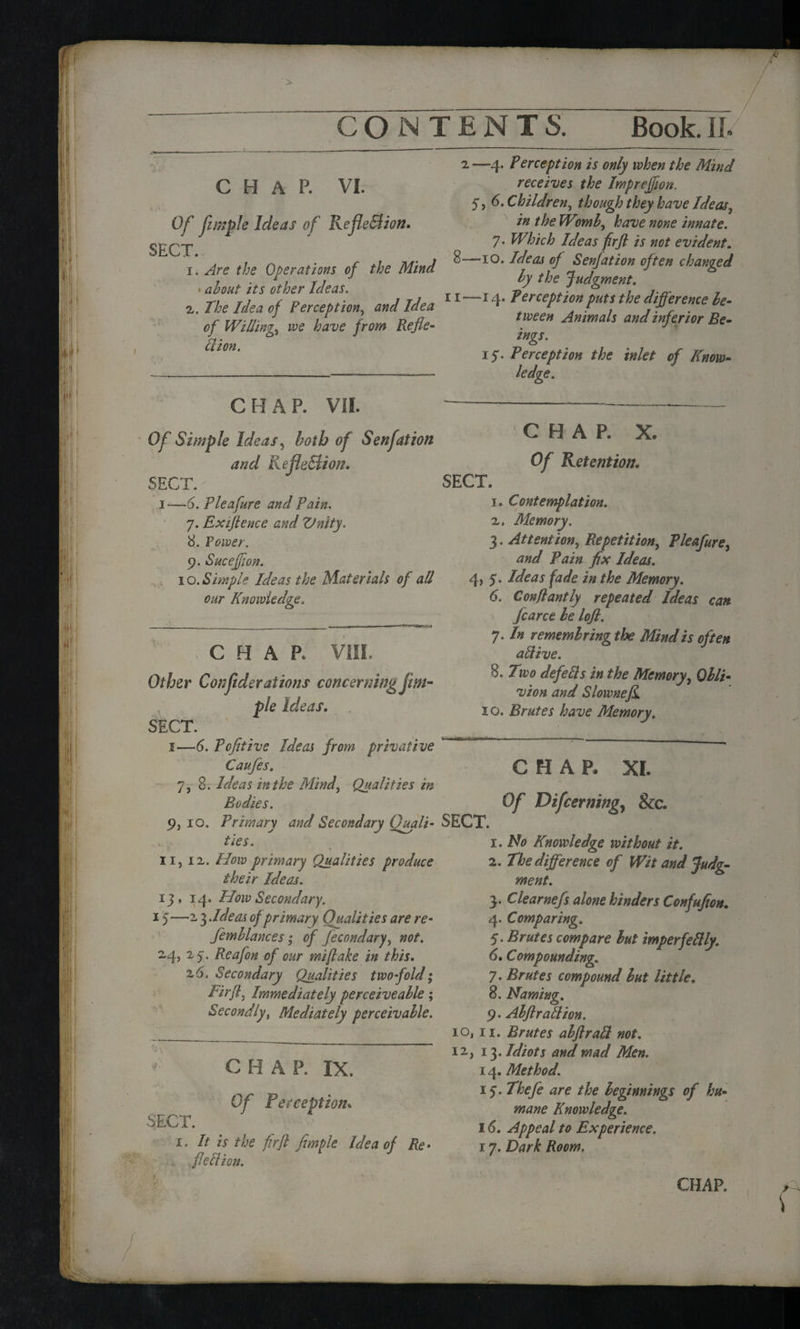 CONTENTS. Book. II.
CHAP. VI.
Of ſimple Ideas of Reflection.
SECT.
1. Are the Operations of the Mind
about its other Ideas.
2. The Idea of Perception, and Idea
of Willing, we have from Refle-
ction.
CHAP. VII.
Of Simple Ideas, both of Senſation
and Reflection.
SECT.
1—6. Pleaſure and Pain.
7. Exiſtence and Vnity.
8. Power.
9. Suceſſion.
10. Simple Ideas the Materials of all
our Knowledge.
CHAP. VIII.
Other Conſiderations concerning ſim-
ple Ideas.
SECT.
1—6. Poſitive Ideas from privative
Cauſes.
7, 8. Ideas in the Mind, Qualities in
Bodies.
9, 10. Primary and Secondary Quali-
ties.
11, 12. How primary Qualities produce
their Ideas.
13, 14. How Secondary.
15—23. Ideas of primary Qualities are re-
ſemblances; of ſecondary, not.
24, 25. Reaſon of our miſtake in this.
26. Secondary Qualities two-fold;
Firſt, Immediately perceiveable;
Secondly, Mediately perceivable.
CHAP. IX.
Of Perception.
SECT.
1. It is the firſt ſimple Idea of Re-
flection.
2—4. Perception is only when the Mind
receives the Impreſſion.
5, 6. Children, though they have Ideas,
in the Womb, have none innate.
7. Which Ideas firſt is not evident.
8—10. Ideas of Senſation often changed
by the Judgment.
11—14. Perception puts the difference be-
tween Animals and inferior Be-
ings.
15. Perception the inlet of Know-
ledge.
CHAP. X.
Of Retention.
SECT.
1. Contemplation.
2. Memory.
3. Attention, Repetition, Pleaſure,
and Pain fix Ideas.
4, 5. Ideas fade in the Memory.
6. Conſtantly repeated Ideas can
ſcarce be loſt.
7. In remembring the Mind is often
active.
8. Two defects in the Memory, Obli-
vion and Slowneſs.
10. Brutes have Memory.
CHAP. XI.
Of Diſcerning, &c.
SECT.
1. No Knowledge without it.
2. The difference of Wit and Judg-
ment.
3. Clearneſs alone hinders Confuſion.
4. Comparing.
5. Brutes compare but imperfectly.
6. Compounding.
7. Brutes compound but little.
8. Naming.
9. Abſtraction.
10, 11. Brutes abſtract not.
12, 13. Idiots and mad Men.
14. Method.
15. Theſe are the beginnings of hu-
mane Knowledge.
16. Appeal to Experience.
17. Dark Room.
CHAP.